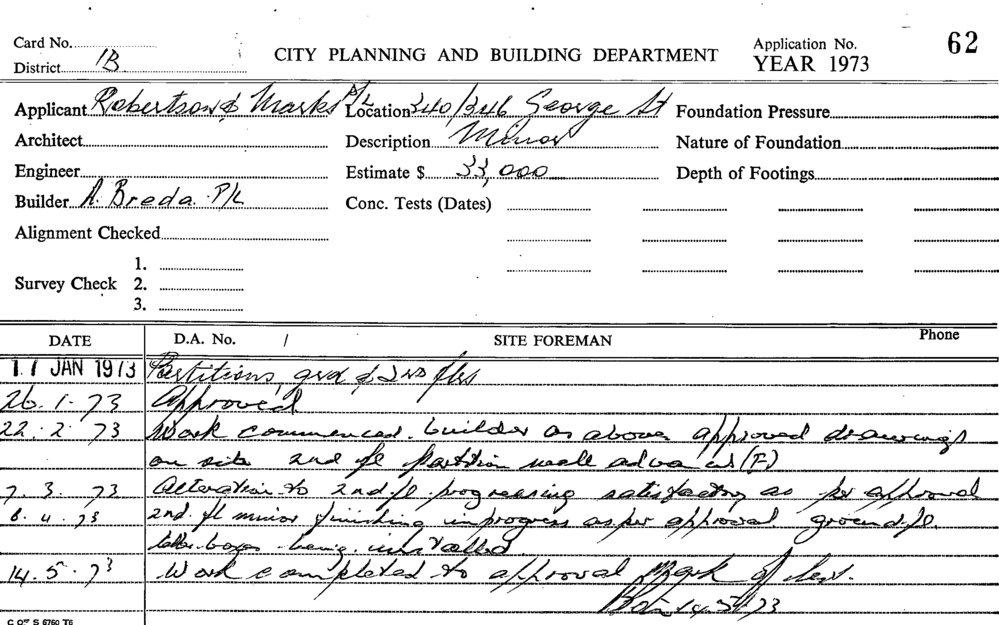 Card No.
District 1B
CITY PLANNING AND BUILDING DEPARTMENT
Application No. 62
YEAR 1973
Applicant Robertson & Marks P/L Location 340/346 George St Foundation Pressure
Architect Description Minor Nature of Foundation
Engineer Estimate $ 33,000 Depth of Footings
Builder A. Breda. P/L Conc. Tests (Dates)
Alignment Checked
1.
Survey Check 2.
3.
DATE D.A. No. / SITE FOREMAN Phone
17 JAN 1973 Partitions, grd & 2nd flrs
26.1.73 Approved
22.2.73 Work commenced. builder as above approved drawings
on site 2nd fl partition wall (F)
7.3.73 Alteration to 2nd fl. progressing satisfactory as per approval
6.4.73 2nd. fl minor finishing in progress as per approval ground fl.
letter boxes being installed
14.5.73 Work completed to approval
14.5.73
C OF S 6760 T6